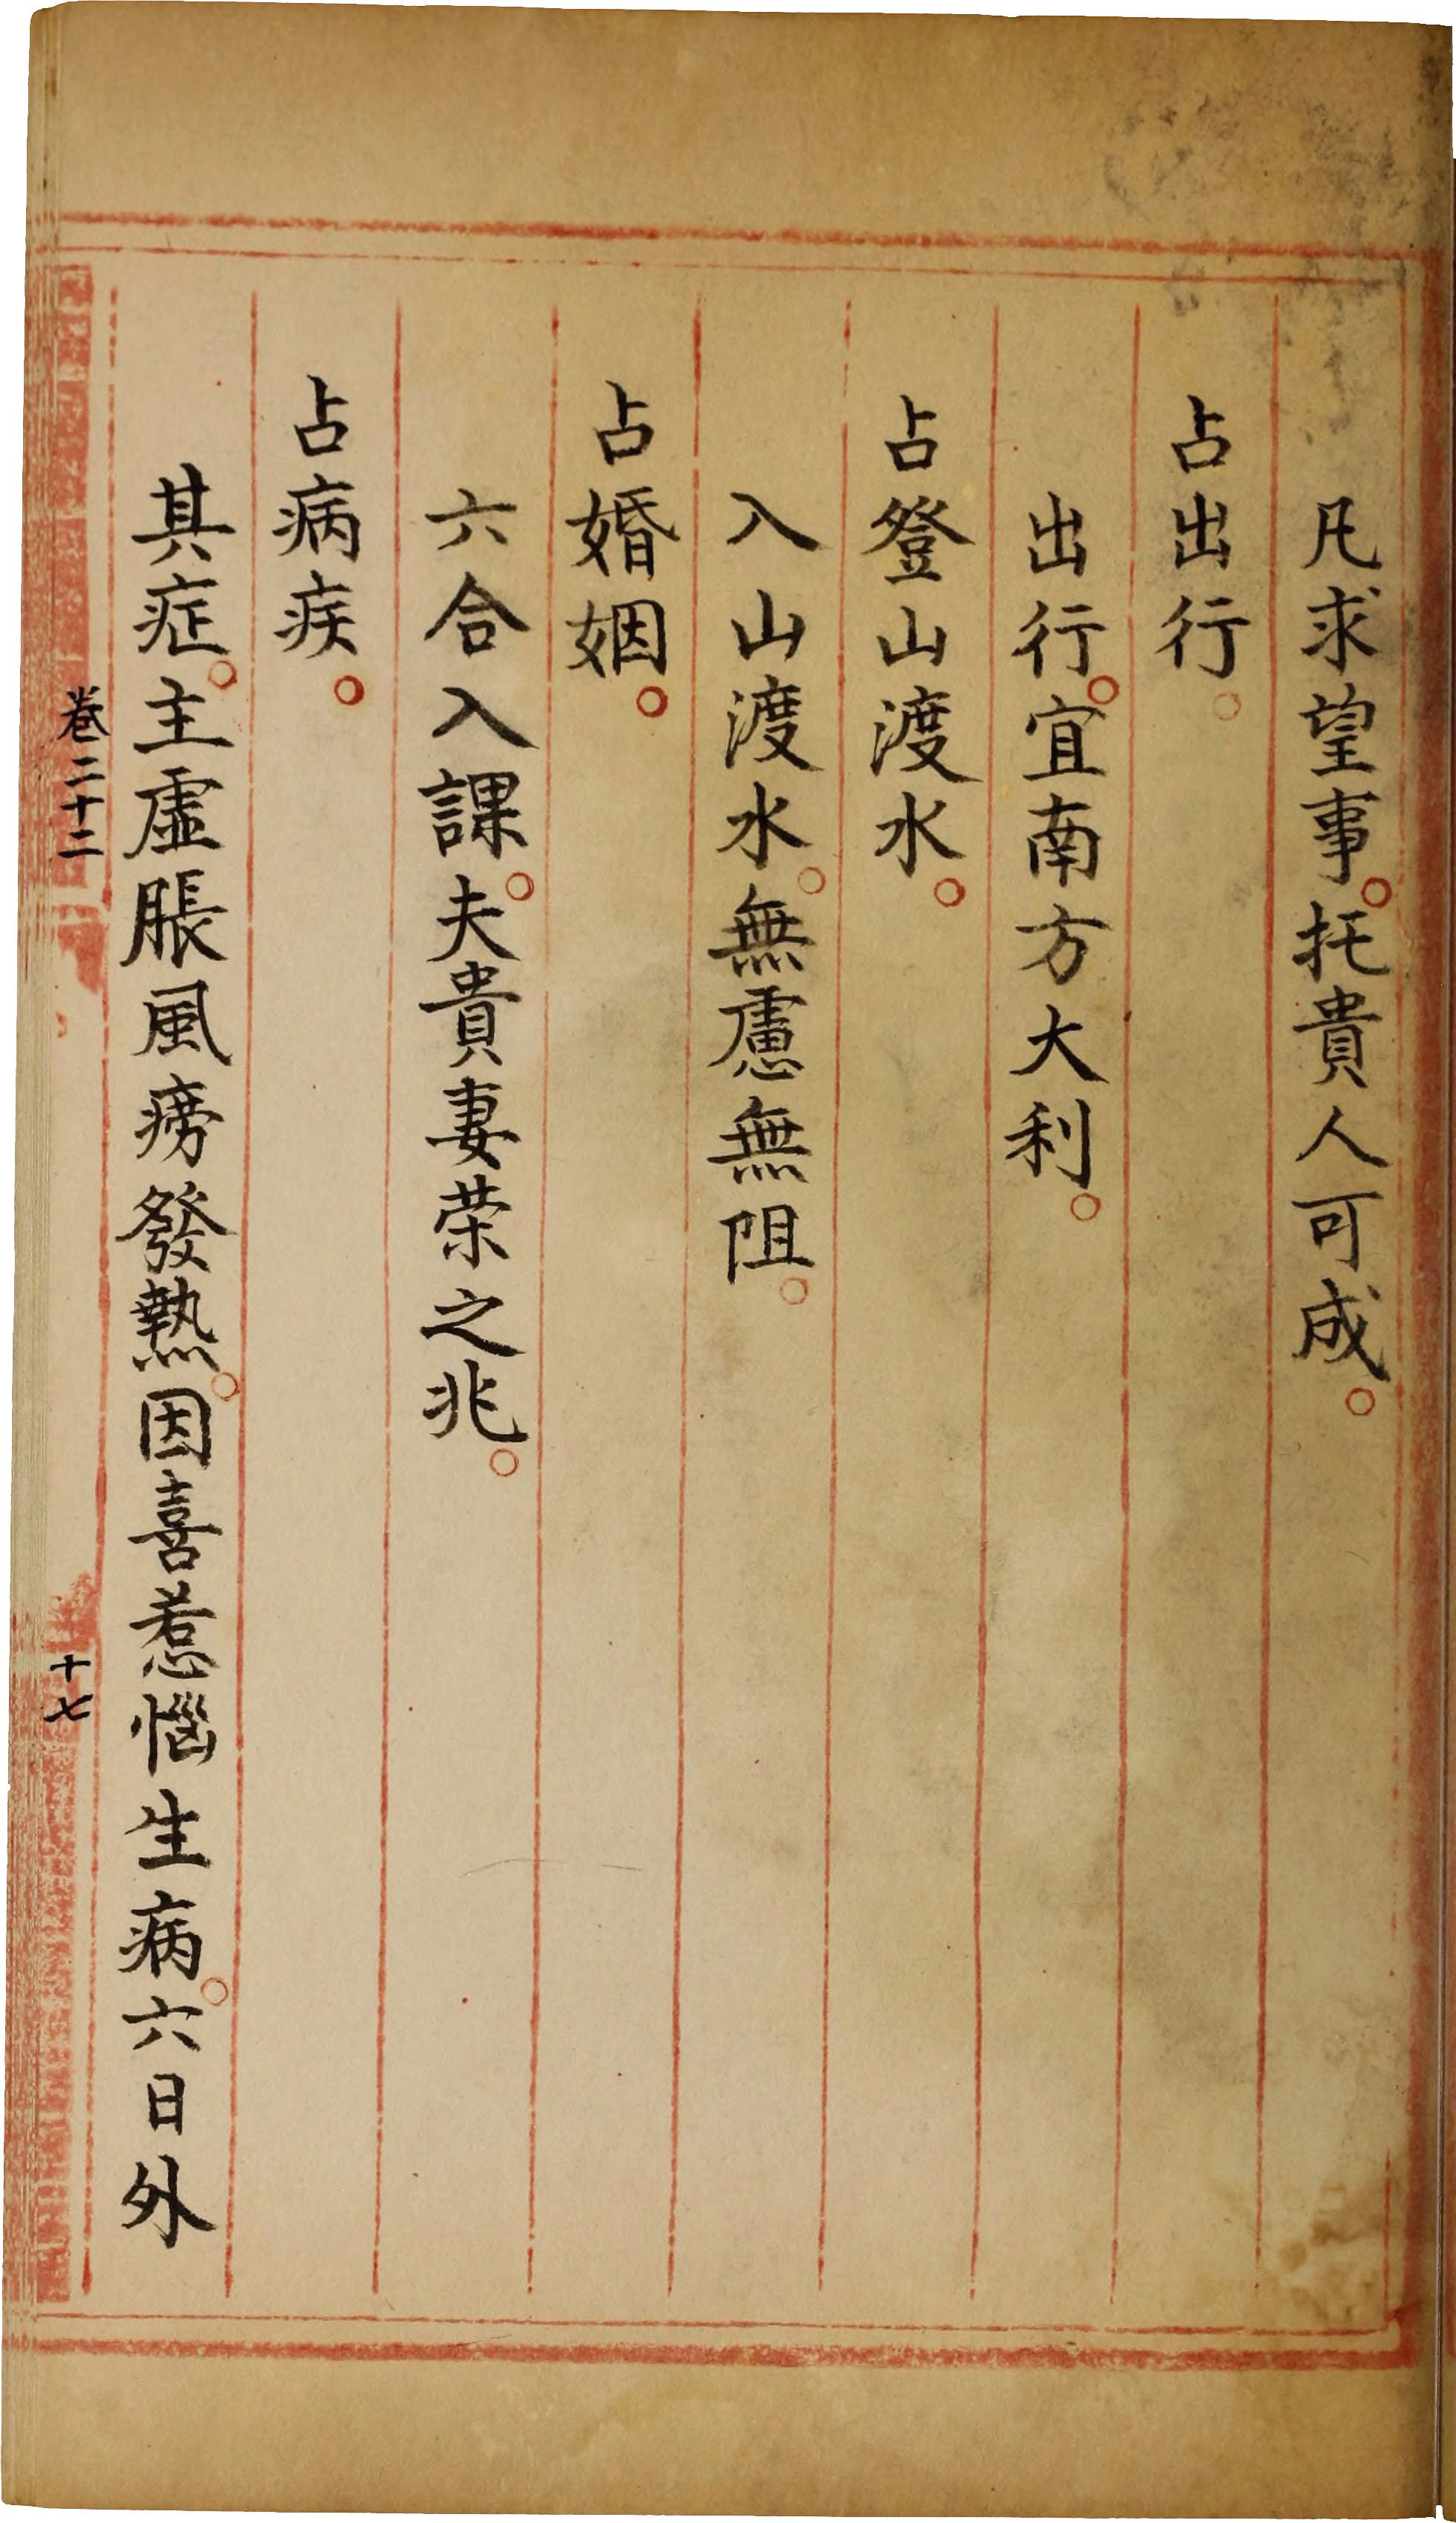 凡求望事。托貴人可成。
占出行。
出行。宜南方大利。
占登山渡水。
入山渡水。無慮無阻。
占婚姻。
六合入課。夫貴妻荣之兆。
占病疾。
其症。主虛脹風痨發熱。因喜惹惱生病。六日外
卷二十二
十七